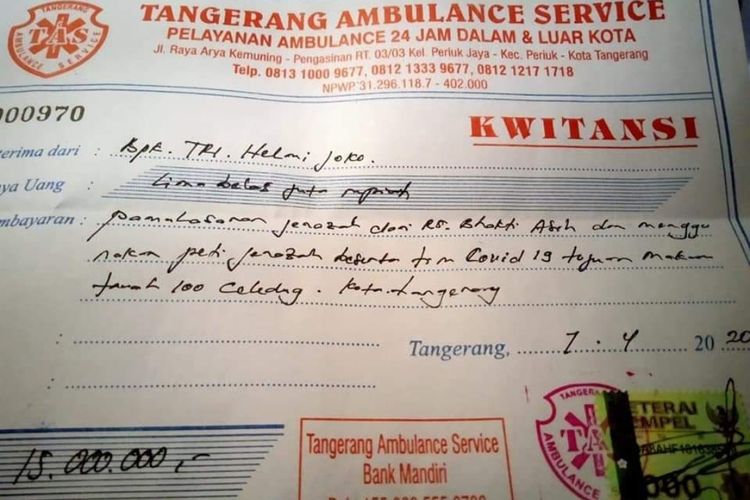 TANGERANG AMBULANCE SERVICE
PELAYANAN AMBULANCE 24 JAM DALAM & LUAR KOTA
Jl. Raya Arya Kemuning - Pengasinan RT. 03/03 Kel. Periuk Jaya - Kec. Periuk - Kota Tangerang
Telp. 0813 1000 9677, 0812 1333 9677, 0812 1217 1718
NPWP 31.296.118.7 - 402.000
TANGERANG
TAS
AMBULANCE SERVICE
000970
KWITANSI
terima dari : Bpk. TRI. Helmi Joko.
ya Uang : Lima belas juta rupiah
mbayaran : pamulasaran jenazah dari RS. Bhakti Asih dan menggu
nakan peti jenazah beserta tim Covid 19 tujuan makam
tanah 100 Ciledug. Kota tangerang
Tangerang, 7 . 4 2020
15.000.000,-
Tangerang Ambulance Service
Bank Mandiri
TANGERANG
TA
METERAI
TEMPEL
000